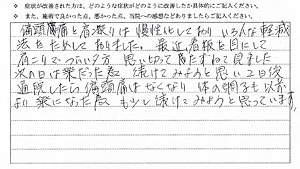 ※ 症状が改善された方は、どのような症状がどのように改善したか具体的にご記入ください。
※ また、施術で良かった点、悪かった点、当院への感想などありましたらご記入ください。
偏頭痛と肩凝りは慢性化しており いろんな軽減
法をためしておりました。最近看板を目にして
肩こりでつらい夕方 思い切って おたずねして見ました
次の日は楽だった為、続けてみようと思い2日後
通院したら偏頭痛はなくなり 体の調子も以前
より楽になった為 もう少し続けてみようと思っています。